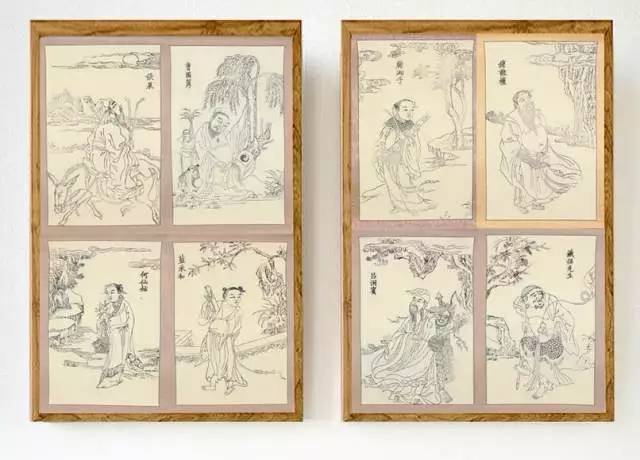 張果
曹國舅
何仙姑
藍采和
韓湘子
鍾離權
呂洞賓
鐵拐先生